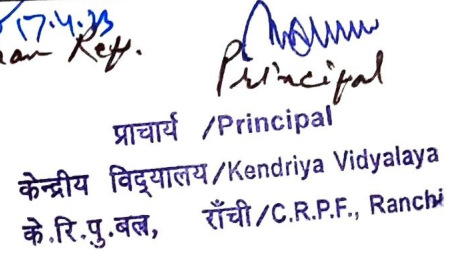 17.4.23
Rep.
Principal
प्राचार्य /Principal
केन्द्रीय विद्यालय/Kendriya Vidyalaya
के.रि.पु.बल, राँची/C.R.P.F., Ranchi